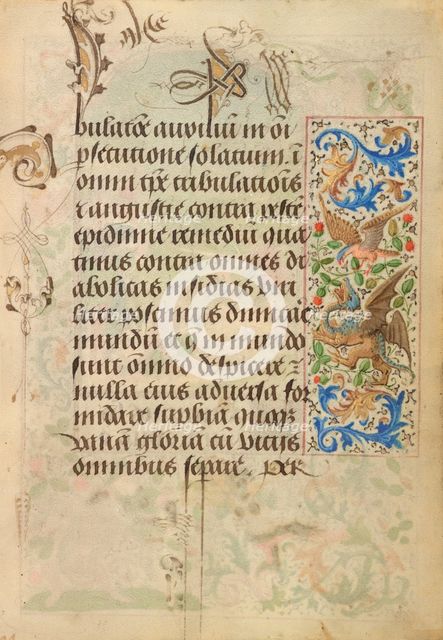 bulatōe auxiliū in oī
psecutione solatium. ī
omni tp̄e tribulationis
⁊ angustie contra peste
epidimie remediū qua
tinus contra omnes di
abolicas insidias viri
liter possimus dimicare
mundū et q̄ in mundo
sunt omnō despicere ⁊
nulla eius adversa for
midare supbia quoqꝫ
vana gloria cū vitiis
omnibus Per